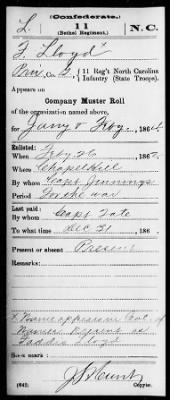 (Confederate.)
L. 11 N.C.
(Bethel Regiment.)
F. Lloyd
Priv, Co. G, 11 Reg't North Carolina Infantry (State Troops).
Appears on
Company Muster Roll
of the organization named above,
for Jany & Feby, 1864.
Enlisted:
When Feby 26, 186
Where Chapel Hill
By whom Capt Jennings
Period For the war
Last paid:
By whom Capt Tate
To what time Dec 31, 186
Present or absent Present
Remarks:
* Name appears in Col. of
Names Present as
Faddis Lloyd
See mark :
(642) Copyist.